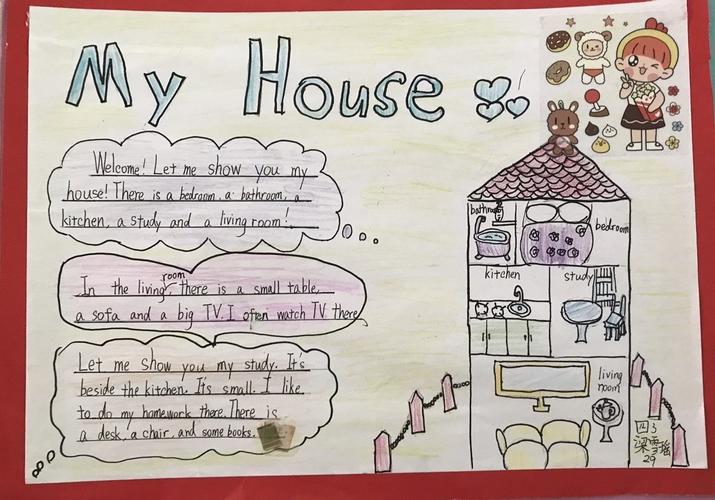 My House
Welcome! Let me show you my
house! There is a bedroom, a bathroom, a
kitchen, a study and a living room!
In the living room, there is a small table,
a sofa and a big TV. I often watch TV there
Let me show you my study. It's
beside the kitchen. It's small. I like
to do my homework there. There is
a desk, a chair, and some books.
bathroom
bedroom
kitchen
study
living
room
四3
梁雨瑶
29